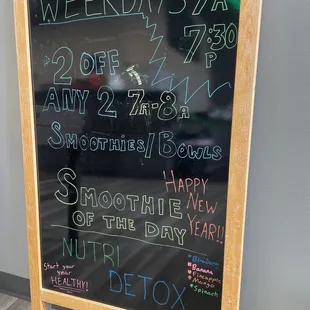 WEEKDAYS 7A
7:30P
2 OFF
ANY 2 7A-8A
SMOOTHIES/BOWLS
SMOOTHIE
OF THE DAY
HAPPY
NEW
YEAR!!
NUTRI
DETOX
Start your
year
HEALTHY!
Banana
Pineapple
Mango
Spinach